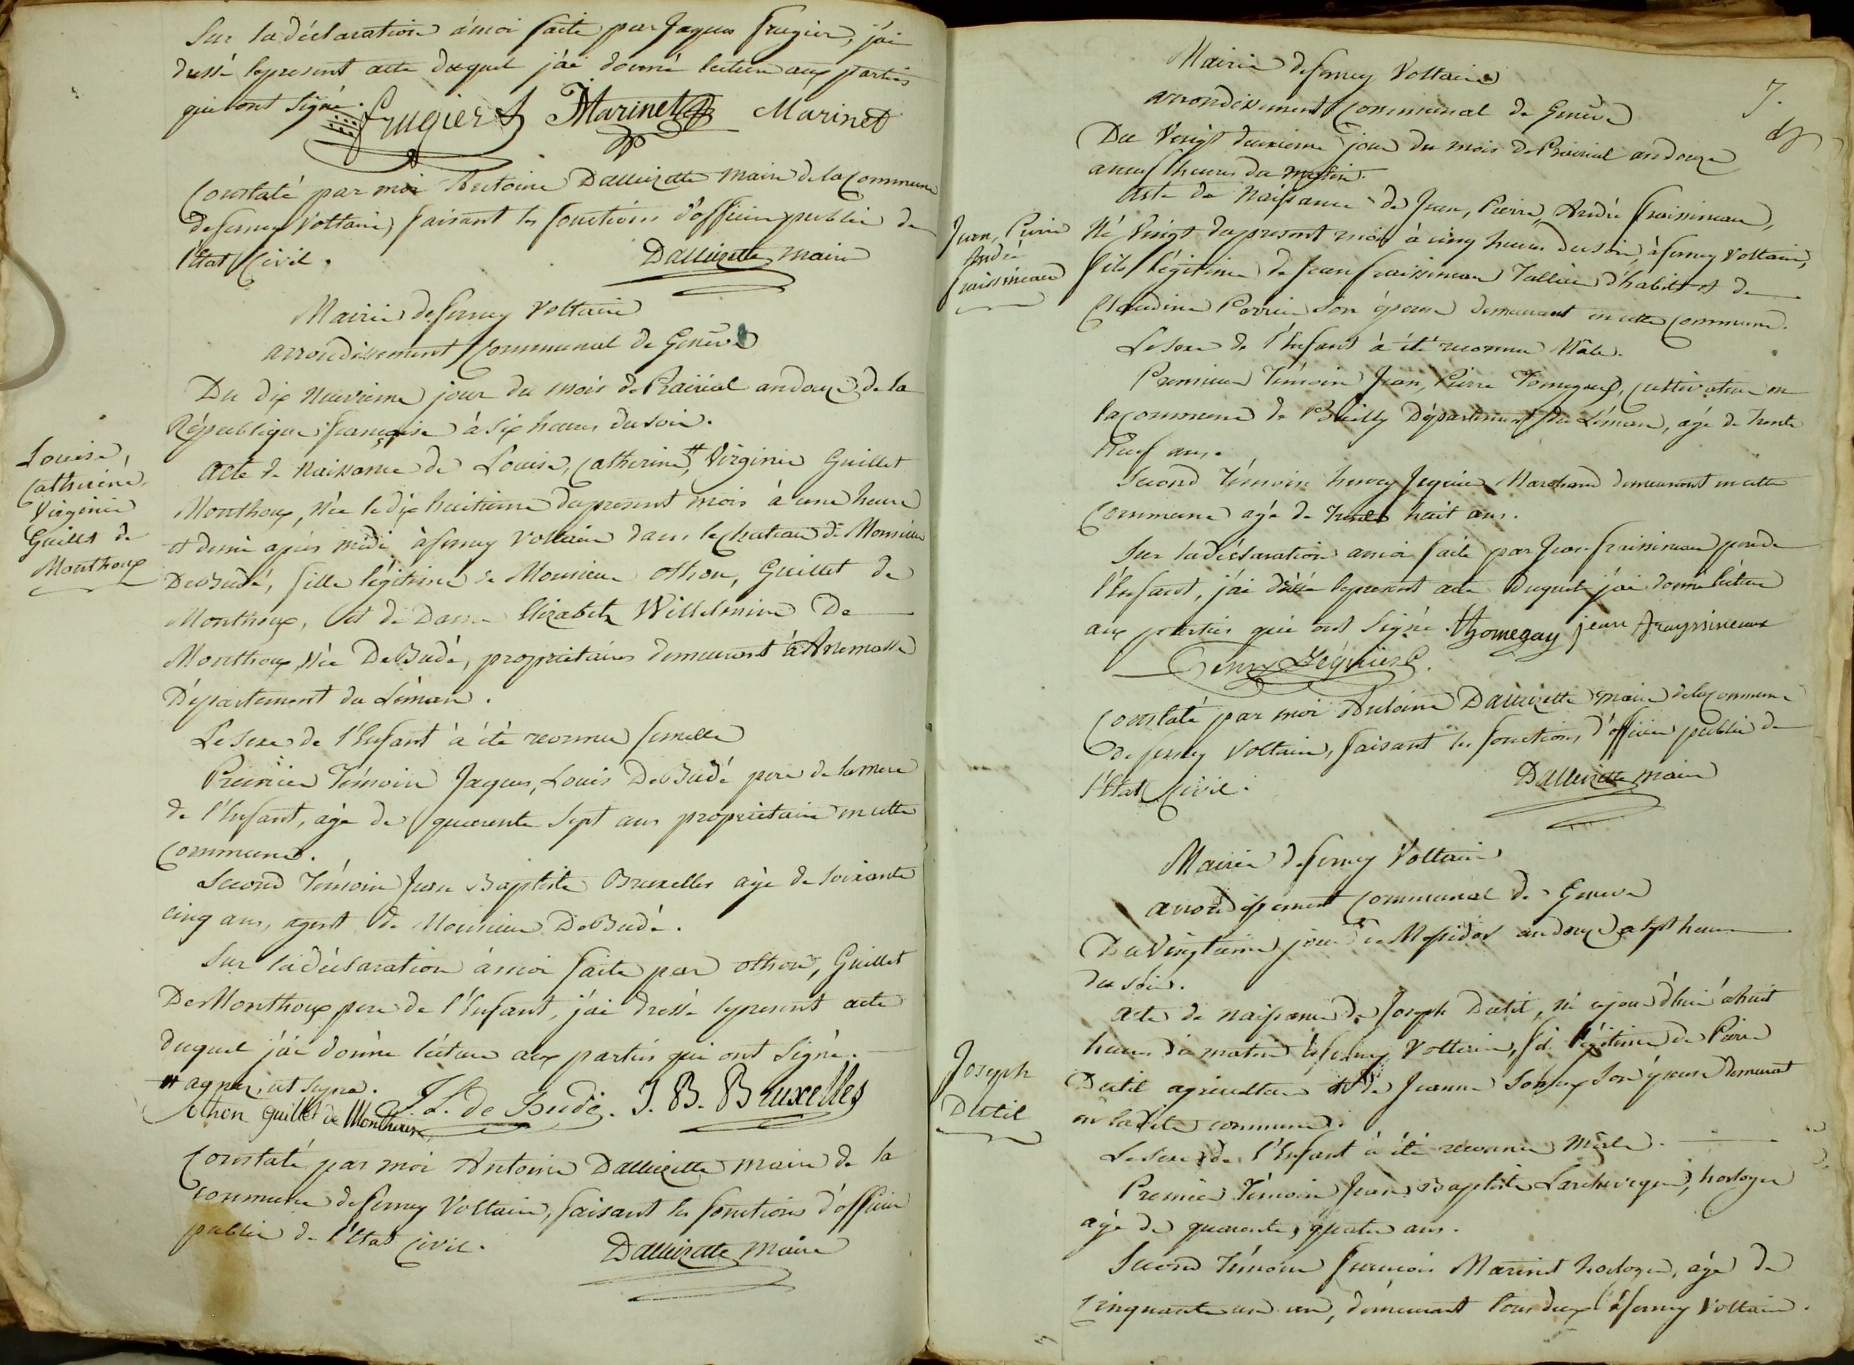 Sur la déclaration à moi faite par Jaques Frugier, j'ai
dressé le present acte duquel j'ai donné lecture aux parties
qui ont signé.
Frugier JMarinet Marinet
Constaté par moi Antoine Dallizette maire de la commune
de ferney Voltaire, faisant les fonctions d'officier public de
l'Etat Civil.
Dallizette maire
Mairie de ferney Voltaire
arrondissement Communal de Genêve
Du dix neuvieme jour du mois de Prairial an douze de la
République française à six heures du soir.
Louise,
Catherine,
Virginie
Guillet de
Monthoux
acte de naissance de Louise, Catherine, # Virginie Guillet
Monthoux, Née le dix huitieme du present mois à une heure
et demie après midi à ferney Voltaire dans le chateau de Monsieur
DeBudé, fille légitime de Monsieur Othon, Guillet de
Monthoux, et de Dame Elizabeth Willelmine De
Monthoux, Née DeBudé, propriétaires demeurant à Anemasse
Département du Léman.
Le sexe de l'Enfant à été reconnu femelle
Premier Témoin Jaques, Louis DeBudé pere de la mere
de l'Enfant, agé de quarente sept ans propriétaire en cette
Commune.
Second Témoin Jean Baptiste Bruxelles agé de soixante
cinq ans, agent de Monsieur DeBudé.
Sur la déclaration à moi faite par Othon, Guillet
De Monthoux pere de l'Enfant, j'ai dressé le present acte
duquel j'ai donné lecture aux parties qui ont signé.
Othon Guillet de Monthoux J. L. de Budé. J. B. Bruxelles
Constaté par moi Antoine Dallizette maire de la
Commune de ferney Voltaire, faisant les fonctions d'officier
public de l'Etat Civil.
Dallizette maire
7.
Mairie de ferney Voltaire
arrondissement Communal de Genêve
Du Vingt deuxieme jour du mois de Prairial an douze
à neuf heures du matin
Jean, Pierre
André
fraissineau
acte de Naissance de Jean, Pierre, André fraissineau,
Né Vingt du present mois à cinq heures du soir, à ferney Voltaire,
fils légitime de Jean fraissineau Tallieur d'habits et de
Claudine Perrier son épouse demeurant en cette Commune.
Le sexe de l'Enfant à été reconnu Mâle.
Premier Témoin Jean, Pierre Tomegay, cultivateur en
la commune de Département du Léman, agé de trente
Neuf ans.
Second Témoin henry Jeguier Marchand demeurant en cette
Commune agé de trente huit ans.
Sur la déclaration à moi faite par Jean fraissineau pere de
l'Enfant, j'ai dressé le present acte Duquel j'ai donné lecture
aux parties qui ont signé. thomegay jean
henry Jeguier
Constaté par moi Antoine Dallizette maire de la Commune
de ferney Voltaire, faisant les fonctions d'officier public de
l'Etat Civil.
Dallizette maire
Mairie de ferney Voltaire
arrondissement Communal de Geneve
Du Vingtieme jour de Messidor an douze à sept heures
du soir.
Joseph
Dutil
acte de naissance de Joseph Dutil, né ce jour d'hui à huit
heures du matin à ferney Voltaire, fils légitime de Pierre
Dutil agriculteur et de Jeanne son épouse Demeurant
en la dite commune.
Le sexe de l'Enfant à été reconnu Mâle.
Premier Témoin Jean Baptiste Larcheveque, horloger
agé de quarente quatre ans.
Second Témoin François Marinet horloger, agé de
Cinquante un an, demeurant tous deux à ferney Voltaire.